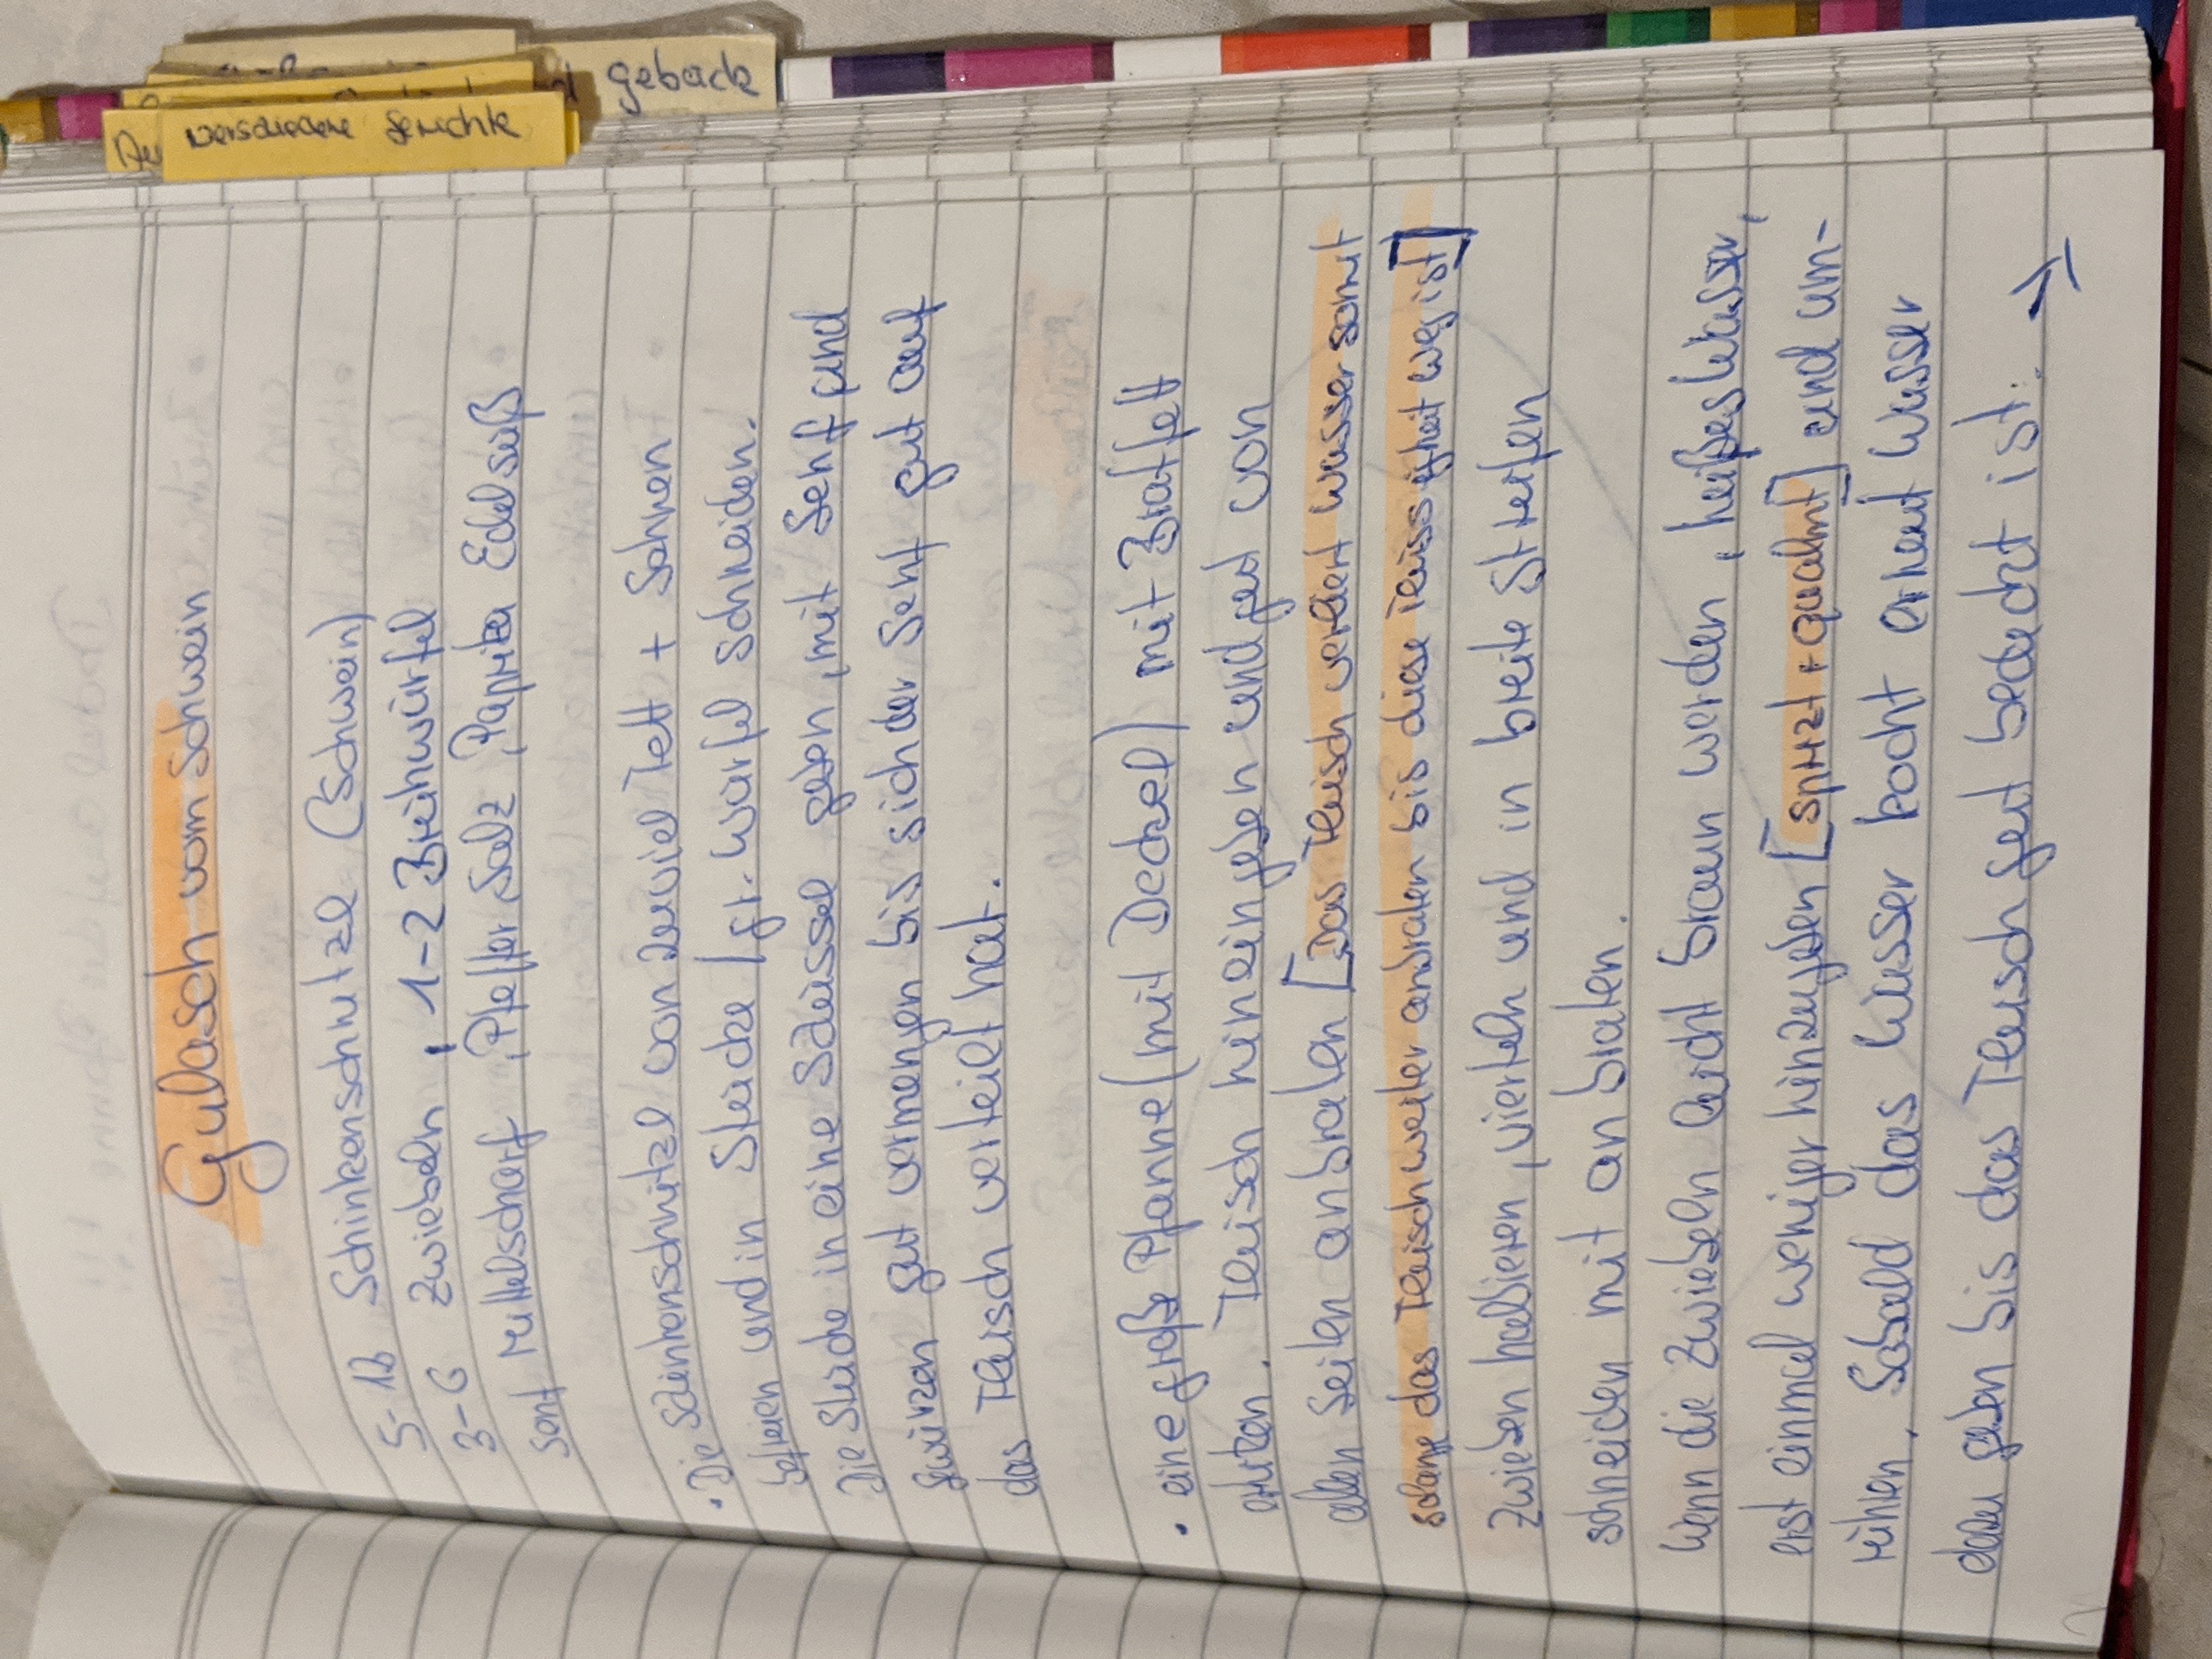 Gebäck
verschiedene Gerichte
Gulasch vom Schwein
5-16 Schinkenschnitzel (Schwein)
3-6 Zwiebeln, 1-2 Brühwürfel
Senf Mittelscharf, Pfeffer Salz, Paprika Edelsüß
• Die Schinkenschnitzel von zuviel Fett + Sehnen
befreien und in Stücke / gr. Würfel schneiden.
Die Stücke in eine Schüssel geben, mit Senf und
Gewürzen gut vermengen bis sich der Senf gut auf
das Fleisch verteilt hat.
• eine große Pfanne (mit Deckel) mit Bratfett
erhitzen. Fleisch hineingeben und gut von
allen Seiten anbraten [Das Fleisch verliert Wasser somit
solange das Fleisch weiter anbraten bis diese Flüssigkeit weg ist]
Zwiebeln halbieren, vierteln und in breite Streifen
schneiden mit anbraten.
Wenn die Zwiebeln leicht braun werden, heißes Wasser,
erst einmal weniger hinzugeben [spritzt + qualmt] und um-
rühren. Sobald das Wasser kocht erneut Wasser
dazu geben bis das Fleisch gut bedeckt ist. →